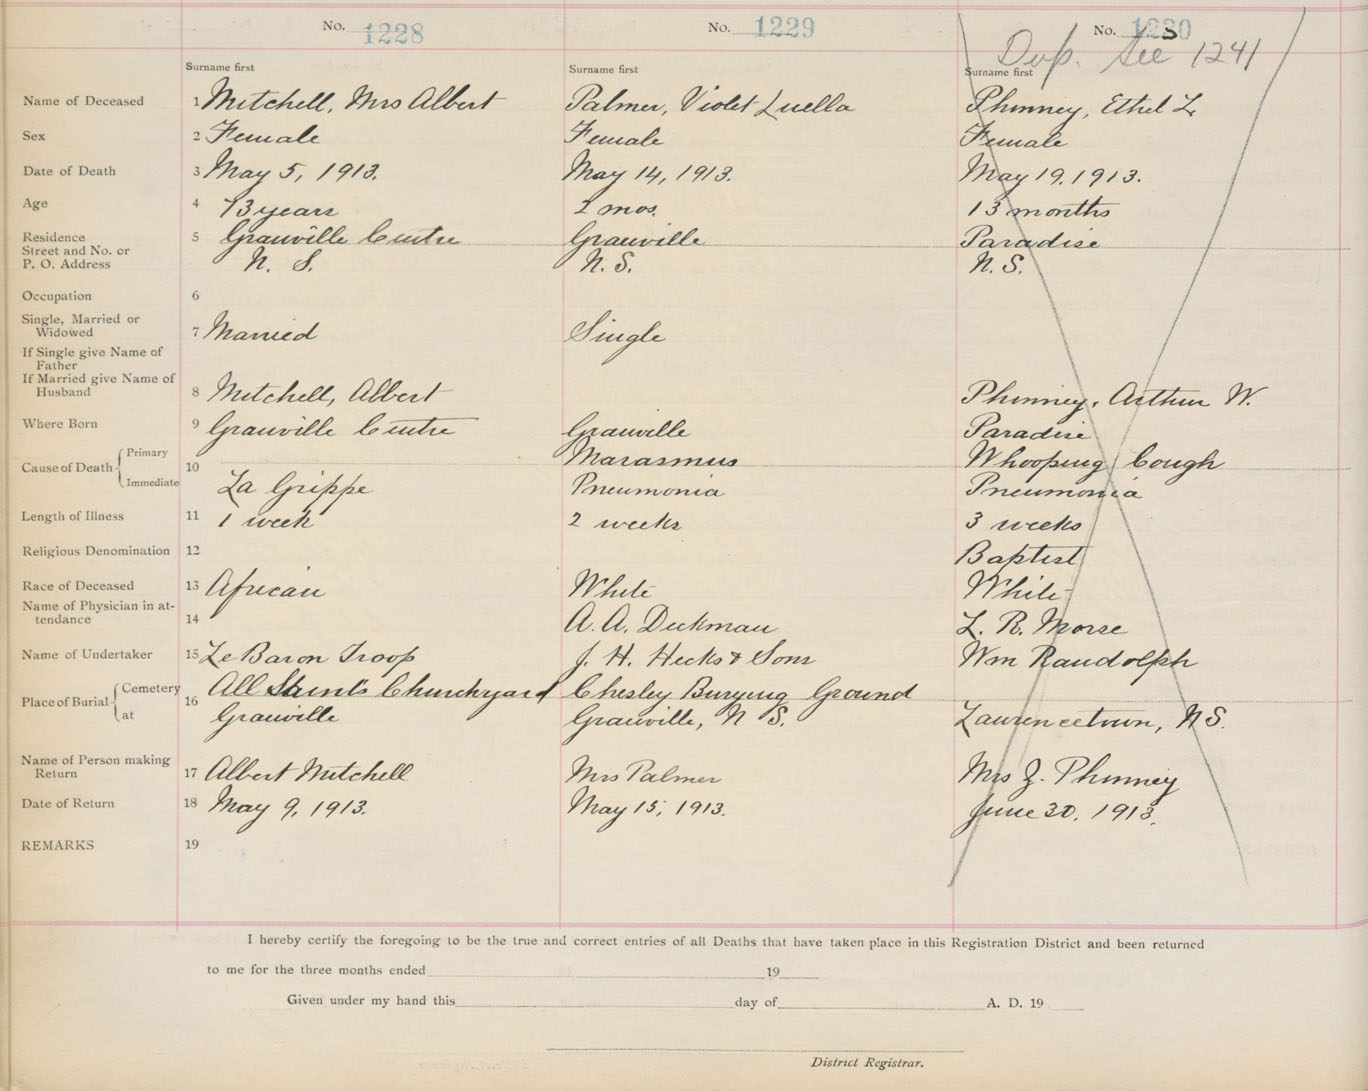 No. 1228 No. 1229 No. 1230
Dup. See 1241
Surname first Surname first Surname first
Name of Deceased 1 Mitchell, Mrs Albert Palmer, Violet Luella Phinney, Ethel L
Sex 2 Female Female Female
Date of Death 3 May 5, 1913. May 14, 1913. May 19, 1913.
Age 4 73 years 2 mos. 13 months
Residence 5 Granville Centre Granville Paradise
Street and No. or
P. O. Address N. S. N. S. N. S.
Occupation 6
Single, Married or
Widowed 7 Married Single
If Single give Name of
Father
If Married give Name of
Husband 8 Mitchell, Albert Phinney, Arthur W.
Where Born 9 Granville Centre Granville Paradise
Cause of Death Primary 10 Marasmus Whooping Cough
Immediate La Grippe Pneumonia Pneumonia
Length of Illness 11 1 week 2 weeks 3 weeks
Religious Denomination 12 Baptist
Race of Deceased 13 African White White
Name of Physician in at-
tendance 14 A. A. Deckman L. R. Morse
Name of Undertaker 15 LeBaron Troop J. H. Hecks & Sons Wm Randolph
Place of Burial Cemetery 16 All Saint's Churchyard Chesley Burying Ground
at Granville Granville, N S. Laurencetown, NS.
Name of Person making
Return 17 Albert Mitchell Mrs Palmer Mrs Z. Phinney
Date of Return 18 May 9, 1913. May 15, 1913. June 30, 1913.
REMARKS 19
I hereby certify the foregoing to be the true and correct entries of all Deaths that have taken place in this Registration District and been returned
to me for the three months ended 19
Given under my hand this day of A. D. 19
District Registrar.